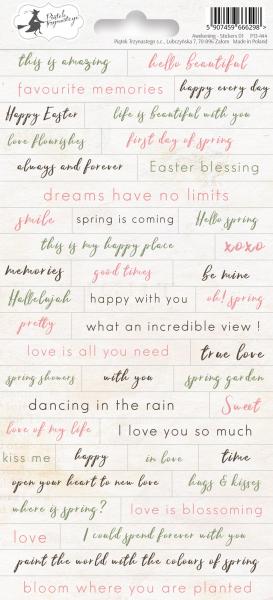 Piątek Trzynastego
5 907459 666298 >
Awakening - Stickers 01 P13-444
Piątek Trzynastego s.c., Lubczyńska 7, 70-895 Załom Made in Poland
this is amazing hello beautiful
favourite memories happy every day
Happy Easter life is beautiful with you
love flourishes first day of spring
always and forever Easter blessing
dreams have no limits
smile spring is coming Hello spring
this is my happy place xoxo
memories good times be mine
Hallelujah happy with you oh! spring
pretty what an incredible view !
love is all you need true love
spring showers with you spring garden
dancing in the rain Sweet
love of my life I love you so much
kiss me happy in love time
open your heart to new love hugs & kisses
where is spring? love is blossoming
love I could spend forever with you
paint the world with the colours of spring
bloom where you are planted